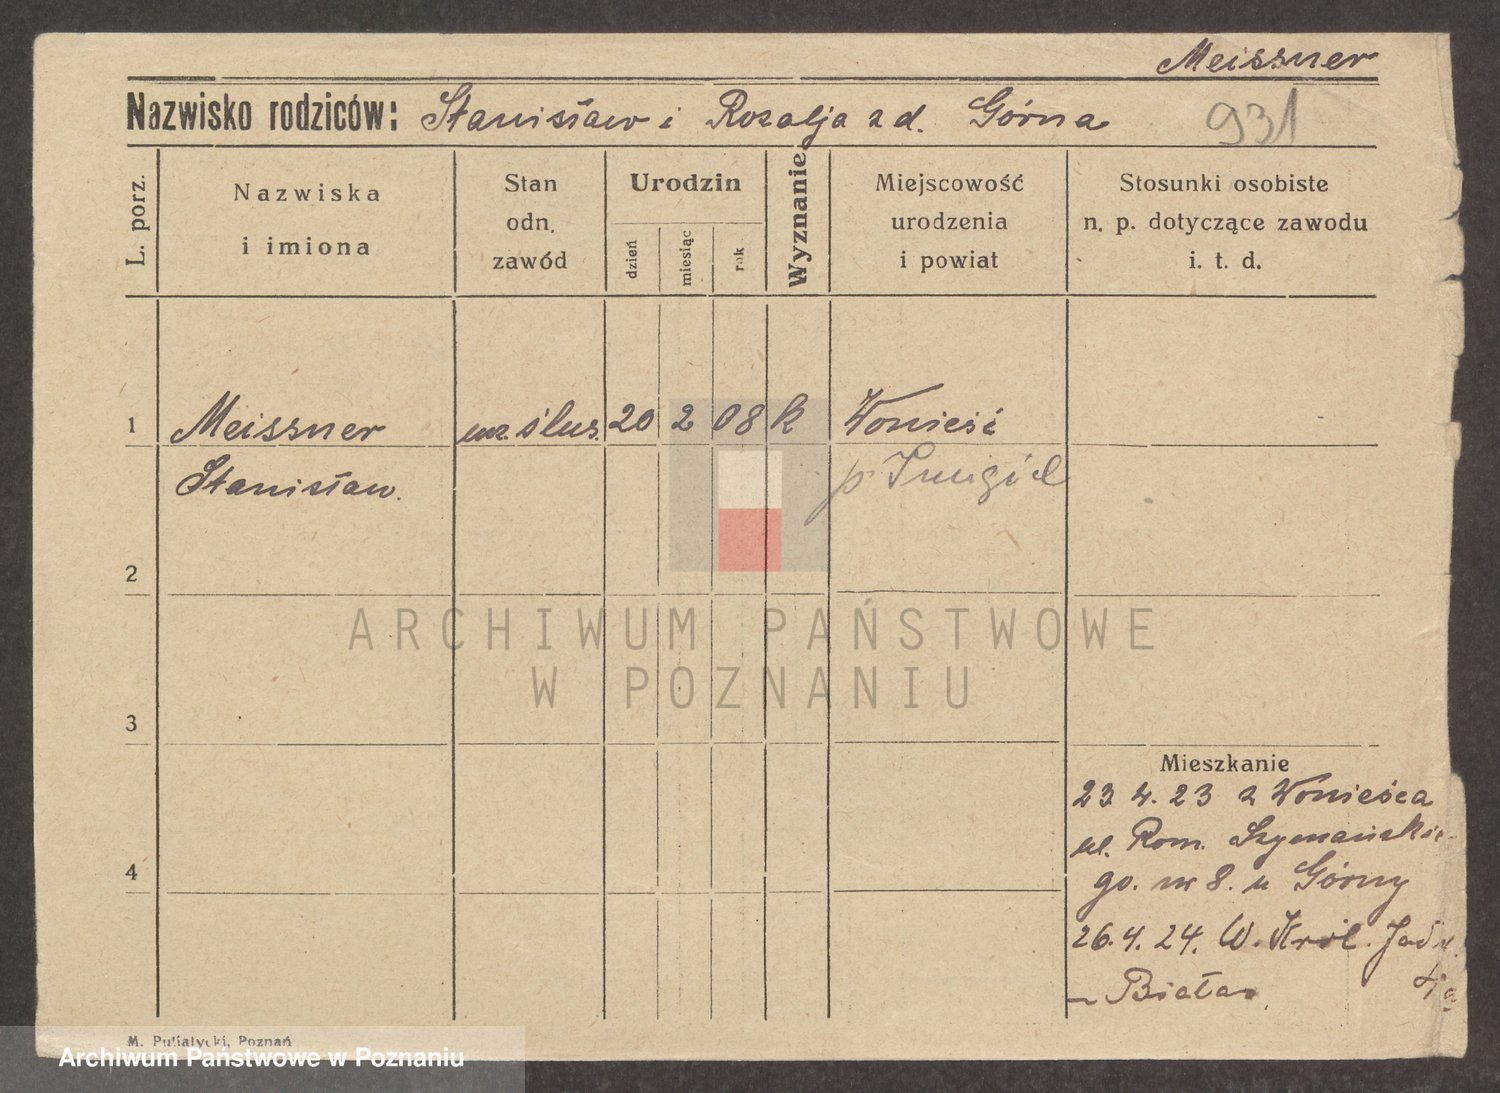 Meissner
Nazwisko rodziców: Stanisław i Rozalja z d. Górna 931
L. porz.
Nazwiska
i imiona
Stan
odn.
zawód
Urodzin
dzień
miesiąc
rok
Wyznanie
Miejscowość
urodzenia
i powiat
Stosunki osobiste
n. p. dotyczące zawodu
i. t. d.
1 Meissner ucz. ślus. 20 2 08 k Wonieść
Stanisław. p Śmigiel
2
3
4
Mieszkanie
23 4. 23 z Wonieśca
ul. Rom. Szymańskie
go. nr 8. u Górny
26.4. 24. W. Król. Jadw.
Biała
M. Putiatycki, Poznań
ARCHIWUM PAŃSTWOWE
W POZNANIU
Archiwum Państwowe w Poznaniu